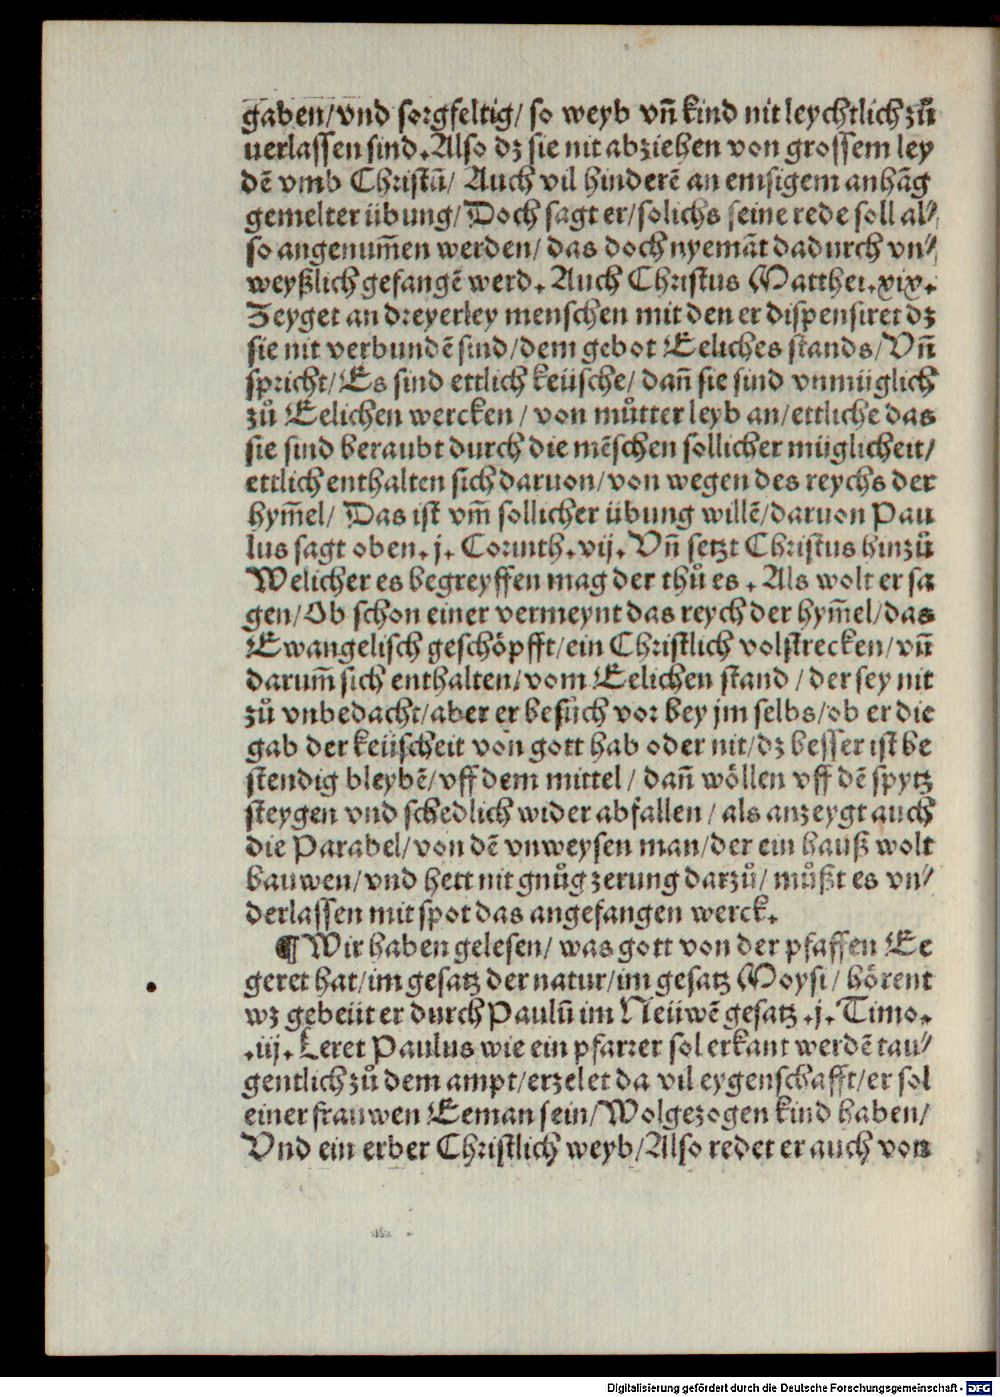 gaben/vnd sorgfeltig/ so weyb vñ kind nit leychtlich zů
uerlassen sind. Also dz sie nit abziehen von grossem ley
dē vmb Christū/ Auch vil hinderē an emsigem anhāg
gemelter übung/ Doch sagt er/ solichs seine rede soll al⸗
so angenum̄en werden/ das doch nyemāt dadurch vn⸗
weyßlich gefangē werd. Auch Christus Matthei. xix.
Zeyget an dreyerley menschen mit den er dispensiret dz
sie nit verbundē sind/dem gebot Eeliches stands/ Vñ
spricht/ Es sind ettlich keüsche/ dañ sie sind vnmüglich
zů Eelichen wercken / von můtter leyb an/ ettliche das
sie sind beraubt durch die mēschen sollicher müglicheit/
ettlich enthalten sich daruon/ von wegen des reychs der
hym̄el/ Das ist vm̄ sollicher übung willē/daruon Pau
lus sagt oben. j. Corinth. vij. Vñ setzt Christus hinzů
Welicher es begreyffen mag der thů es . Als wolt er sa
gen/ Ob schon einer vermeynt das reych der hym̄el/das
Ewangelisch geschöpfft/ein Christlich volstrecken/ vñ
darum̄ sich enthalten/vom Eelichen stand / der sey nit
zů vnbedacht/aber er besůch vor bey jm selbs/ob er die
gab der keüscheit von gott hab oder nit/dz besser ist be
stendig bleybē/vff dem mittel / dañ wöllen vff dē spytz
steygen vnd schedlich wider abfallen / als anzeygt auch
die Parabel/von dē vnweysen man/der ein hauß wolt
bauwen/vnd hett nit gnůg zerung darzů/ můßt es vn⸗
derlassen mit spot das angefangen werck.
¶ Wir haben gelesen/ was gott von der pfaffen Ee
geret hat/im gesatz der natur/im gesatz Moysi/ hörent
wz gebeüt er durch Paulū im Neüwē gesatz .j. Timo.
.iij. Leret Paulus wie ein pfarrer sol erkant werdē tau⸗
gentlich zů dem ampt/erzelet da vil eygenschafft/er sol
einer frauwen Eeman sein/Wolgezogen kind haben/
Vnd ein erber Christlich weyb/Also redet er auch von
Digitalisierung gefördert durch die Deutsche Forschungsgemeinschaft - DFG